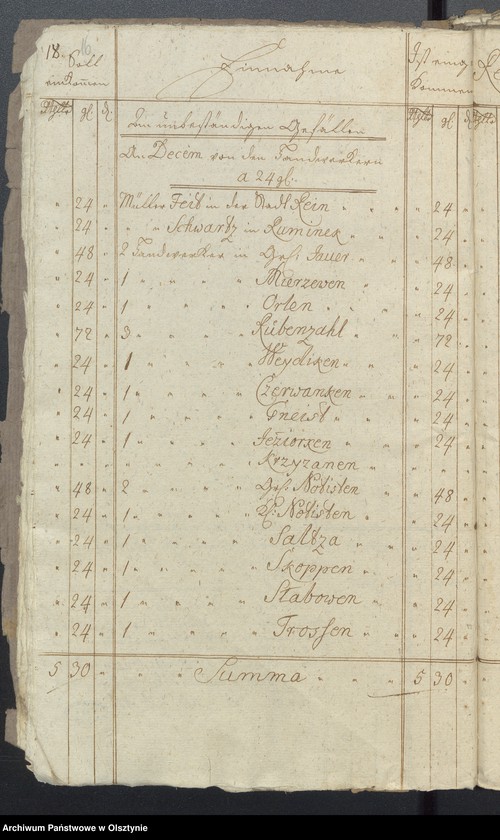 18.
16
Soll
einkom̄en
Einnahme
Ist eing
kommen
Rthlr gl. d.
Rthlr gl. d.
An unbeständigen Gefällen
An Decem von den Handwerkern
a 24 gl.
" 24 " Müller Feist in der Stadt Rhein " " " 24 "
" 24 " " " Schwartz in Ruminek " " 24 "
" 48 " 2 Handwerker in Gr: Jauer " " 48 "
" 24 " 1 " " " Mierzewen " " 24 "
" 24 " 1 " " " Orlen " " 24 "
" 72 " 3 " " " Rübenzahl " " 72 "
" 24 " 1 " " " Weydiken " " 24 "
" 24 " 1 " " " Czerwanken " " 24 "
" 24 " 1 " " " Gneist " " 24 "
" 24 " 1 " " " Jeziorken " " 24 "
" " " " " " " Krzyzanen " " " "
" 48 " 2 " " " Gr: Notisten " " 48 "
" 24 " 1 " " " Kl: Notisten " " 24 "
" 24 " 1 " " " Saltza " " 24 "
" 24 " 1 " " " Skoppen " " 24 "
" 24 " 1 " " " Stabowen " " 24 "
" 24 " 1 " " " Trossen " " 24 "
5 30 " " " Summa " " " 5 30 "
Archiwum Państwowe w Olsztynie